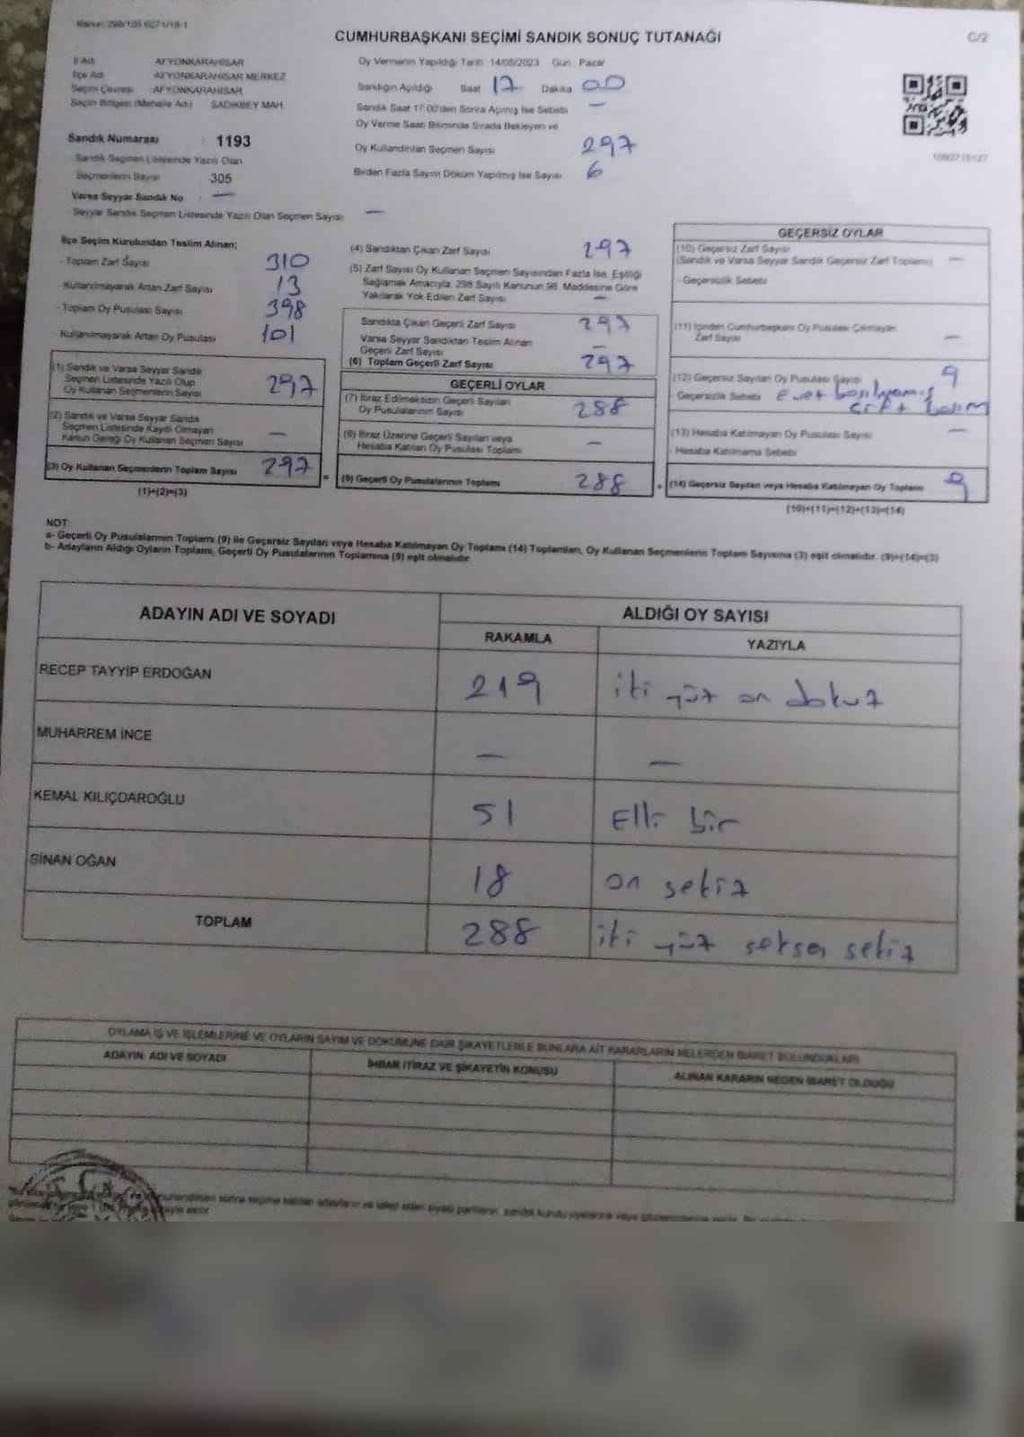 CUMHURBAŞKANI SEÇİMİ SANDIK SONUÇ TUTANAĞI
C/2
İl Adı : AFYONKARAHİSAR
İlçe Adı : AFYONKARAHİSAR MERKEZ
Seçim Çevresi : AFYONKARAHİSAR
Seçim Bölgesi (Mahalle Adı) SADIKBEY MAH.
Oy Vermenin Yapıldığı Tarih: 14/05/2023 Gün: Pazar
Sandığın Açıldığı Saat 17 Dakika 00
Sandık Saat 17:00'den Sonra Açılmış İse Sebebi —
Oy Verme Saati Bitiminde Sırada Bekleyen ve
Oy Kullandırılan Seçmen Sayısı 297
Birden Fazla Sayım Döküm Yapılmış İse Sayısı 6
Sandık Numarası : 1193
Sandık Seçmen Listesinde Yazılı Olan
Seçmenlerin Sayısı 305
Varsa Seyyar Sandık No : —
Seyyar Sandık Seçmen Listesinde Yazılı Olan Seçmen Sayısı —
İlçe Seçim Kurulundan Teslim Alınan;
- Toplam Zarf Sayısı 310
Kullanılmayarak Artan Zarf Sayısı 13
- Toplam Oy Pusulası Sayısı 398
Kullanılmayarak Artan Oy Pusulası 101
(1) Sandık ve Varsa Seyyar Sandık
Seçmen Listesinde Yazılı Olup
Oy Kullanan Seçmenlerin Sayısı 297
(2) Sandık ve Varsa Seyyar Sandık
Seçmen Listesinde Kayıtlı Olmayan
Kanun Gereği Oy Kullanan Seçmen Sayısı —
(3) Oy Kullanan Seçmenlerin Toplam Sayısı 297
(1)+(2)=(3)
(4) Sandıktan Çıkan Zarf Sayısı 297
(5) Zarf Sayısı Oy Kullanan Seçmen Sayısından Fazla İse, Eşitliği
Sağlamak Amacıyla, 298 Sayılı Kanunun 98. Maddesine Göre
Yakılarak Yok Edilen Zarf Sayısı —
Sandıkta Çıkan Geçerli Zarf Sayısı 297
Varsa Seyyar Sandıktan Teslim Alınan
Geçerli Zarf Sayısı —
(6) Toplam Geçerli Zarf Sayısı 297
GEÇERLİ OYLAR
(7) İtiraz Edilmeksizin Geçerli Sayılan
Oy Pusulalarının Sayısı 288
(8) İtiraz Üzerine Geçerli Sayılan veya
Hesaba Katılan Oy Pusulası Toplamı —
(9) Geçerli Oy Pusulalarının Toplamı 288
GEÇERSİZ OYLAR
(10) Geçersiz Zarf Sayısı
(Sandık ve Varsa Seyyar Sandık Geçersiz Zarf Toplamı) —
- Geçersizlik Sebebi
(11) İçinden Cumhurbaşkanı Oy Pusulası Çıkmayan
Zarf Sayısı —
(12) Geçersiz Sayılan Oy Pusulası Sayısı 9
Geçersizlik Sebebi Evet basılmamış
çift basım
(13) Hesaba Katılmayan Oy Pusulası Sayısı —
- Hesaba Katılmama Sebebi
(14) Geçersiz Sayılan veya Hesaba Katılmayan Oy Toplamı 9
(10)+(11)+(12)+(13)=(14)
NOT:
a- Geçerli Oy Pusulalarının Toplamı (9) ile Geçersiz Sayılan veya Hesaba Katılmayan Oy Toplamı (14) Toplamları, Oy Kullanan Seçmenlerin Toplam Sayısına (3) eşit olmalıdır. (9)+(14)=(3)
b- Adayların Aldığı Oyların Toplamı, Geçerli Oy Pusulalarının Toplamına (9) eşit olmalıdır.
ADAYIN ADI VE SOYADI ALDIĞI OY SAYISI
RAKAMLA YAZIYLA
RECEP TAYYİP ERDOĞAN 219 iki yüz on dokuz
MUHARREM İNCE — —
KEMAL KILIÇDAROĞLU 51 Elli bir
SİNAN OĞAN 18 on sekiz
TOPLAM 288 iki yüz seksen sekiz
OYLAMA İŞ VE İŞLEMLERİNE VE OYLARIN SAYIM VE DÖKÜMÜNE DAİR ŞİKAYETLERLE BUNLARA AİT KARARLARIN NELERDEN İBARET BULUNDUKLARI
ADAYIN ADI VE SOYADI İHBAR İTİRAZ VE ŞİKAYETİN KONUSU ALINAN KARARIN NEDEN İBARET OLDUĞU